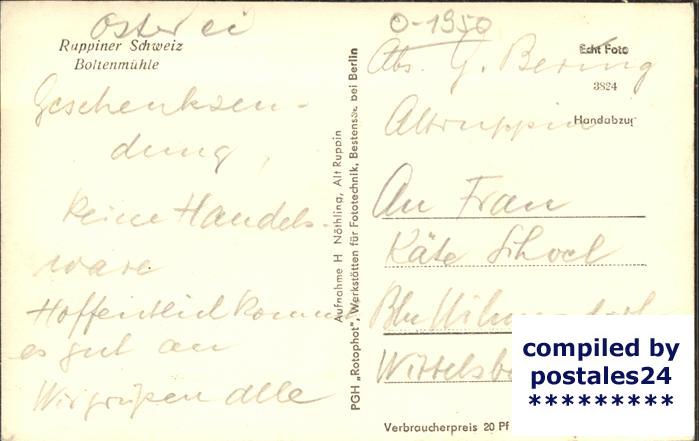 Osterei
Ruppiner Schweiz
Boltenmühle
Geschenksen-
dung,
keine Handels-
ware
Hoffentlich kommt
es gut an
Wir grüßen alle
Aufnahme H Nöthling, Alt Ruppin
PGH „Rotophot", Werkstätten für Fototechnik, Bestensee bei Berlin
O-1950
Echt Foto
Abs. G. Bering
3824
Handabzug
Altruppin
An Frau
Käte Schoel
Bln
Wittelsb
Verbraucherpreis 20 Pf
compiled by
postales24
*********